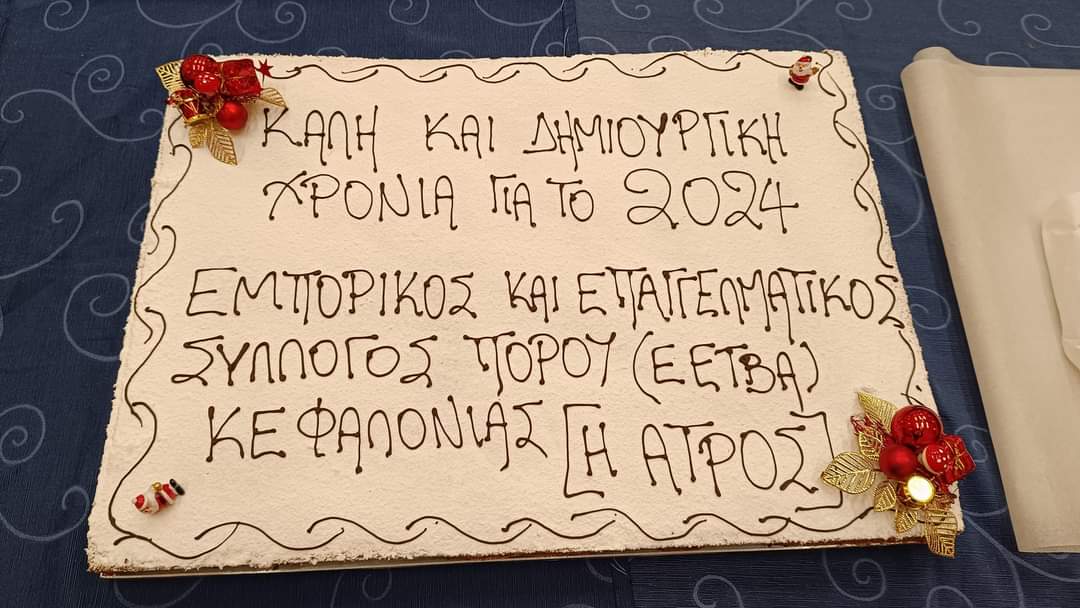 ΚΑΛΗ ΚΑΙ ΔΗΜΙΟΥΡΓΙΚΗ
ΧΡΟΝΙΑ ΓΙΑ ΤΟ 2024
ΕΜΠΟΡΙΚΟΣ ΚΑΙ ΕΠΑΓΓΕΛΜΑΤΙΚΟΣ
ΣΥΛΛΟΓΟΣ ΠΟΡΟΥ (ΕΕΤΒΑ)
ΚΕΦΑΛΟΝΙΑΣ [Η ΑΤΡΟΣ]